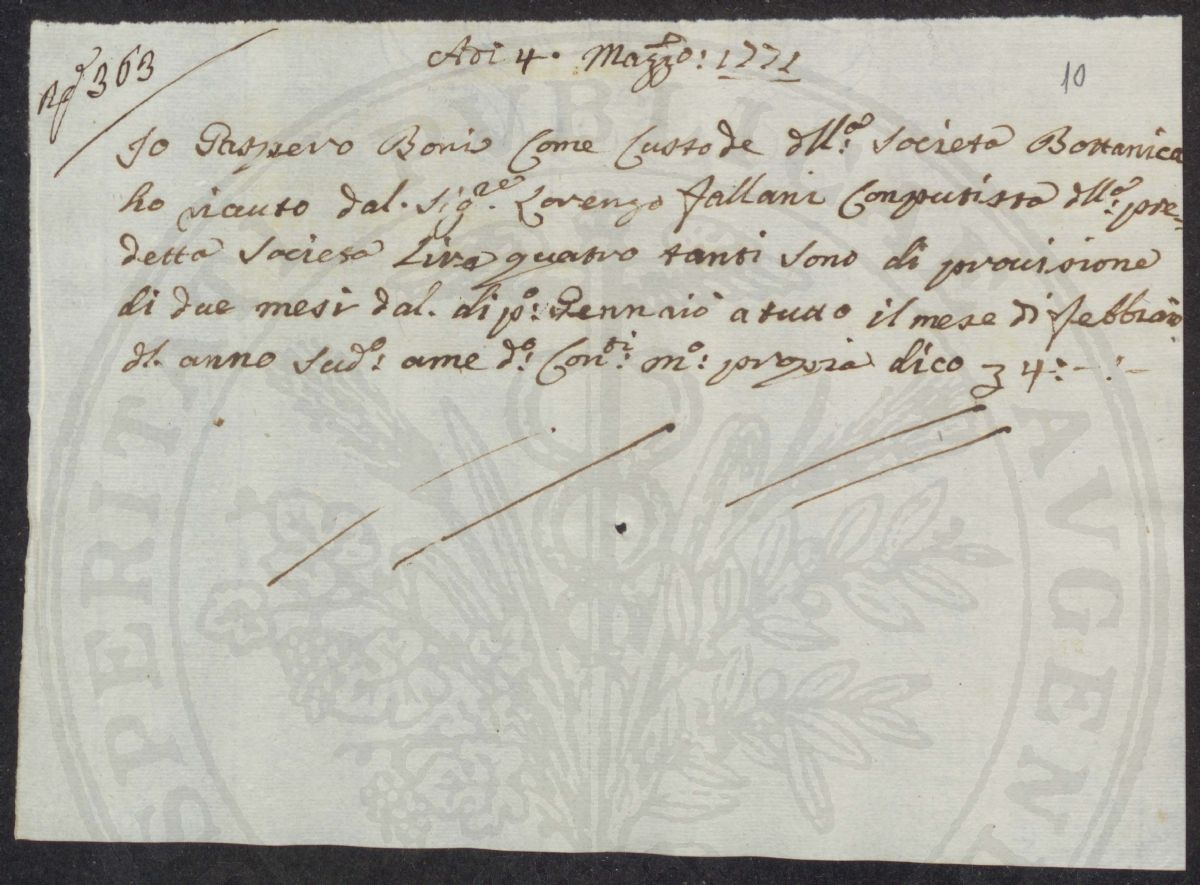 Rg 363
Adi 4. Mazzo: 1771
10
Io Gaspero Boni Come Custode dll:ª Societa Bottanica
ho riauto dal. Sig:re Lorenzo Fallani Conputista dll:ª pre=
detta Societa Lira quatro tanti sono di prouisione
di due mesi dal. di p:º Gennaio a tutto il mese di Febbraio
dl. anno Sud:º ame d:º Con:ti m:º propia dico 3 4:-:-
PVBLICAE
SPERITATI
AVGEN